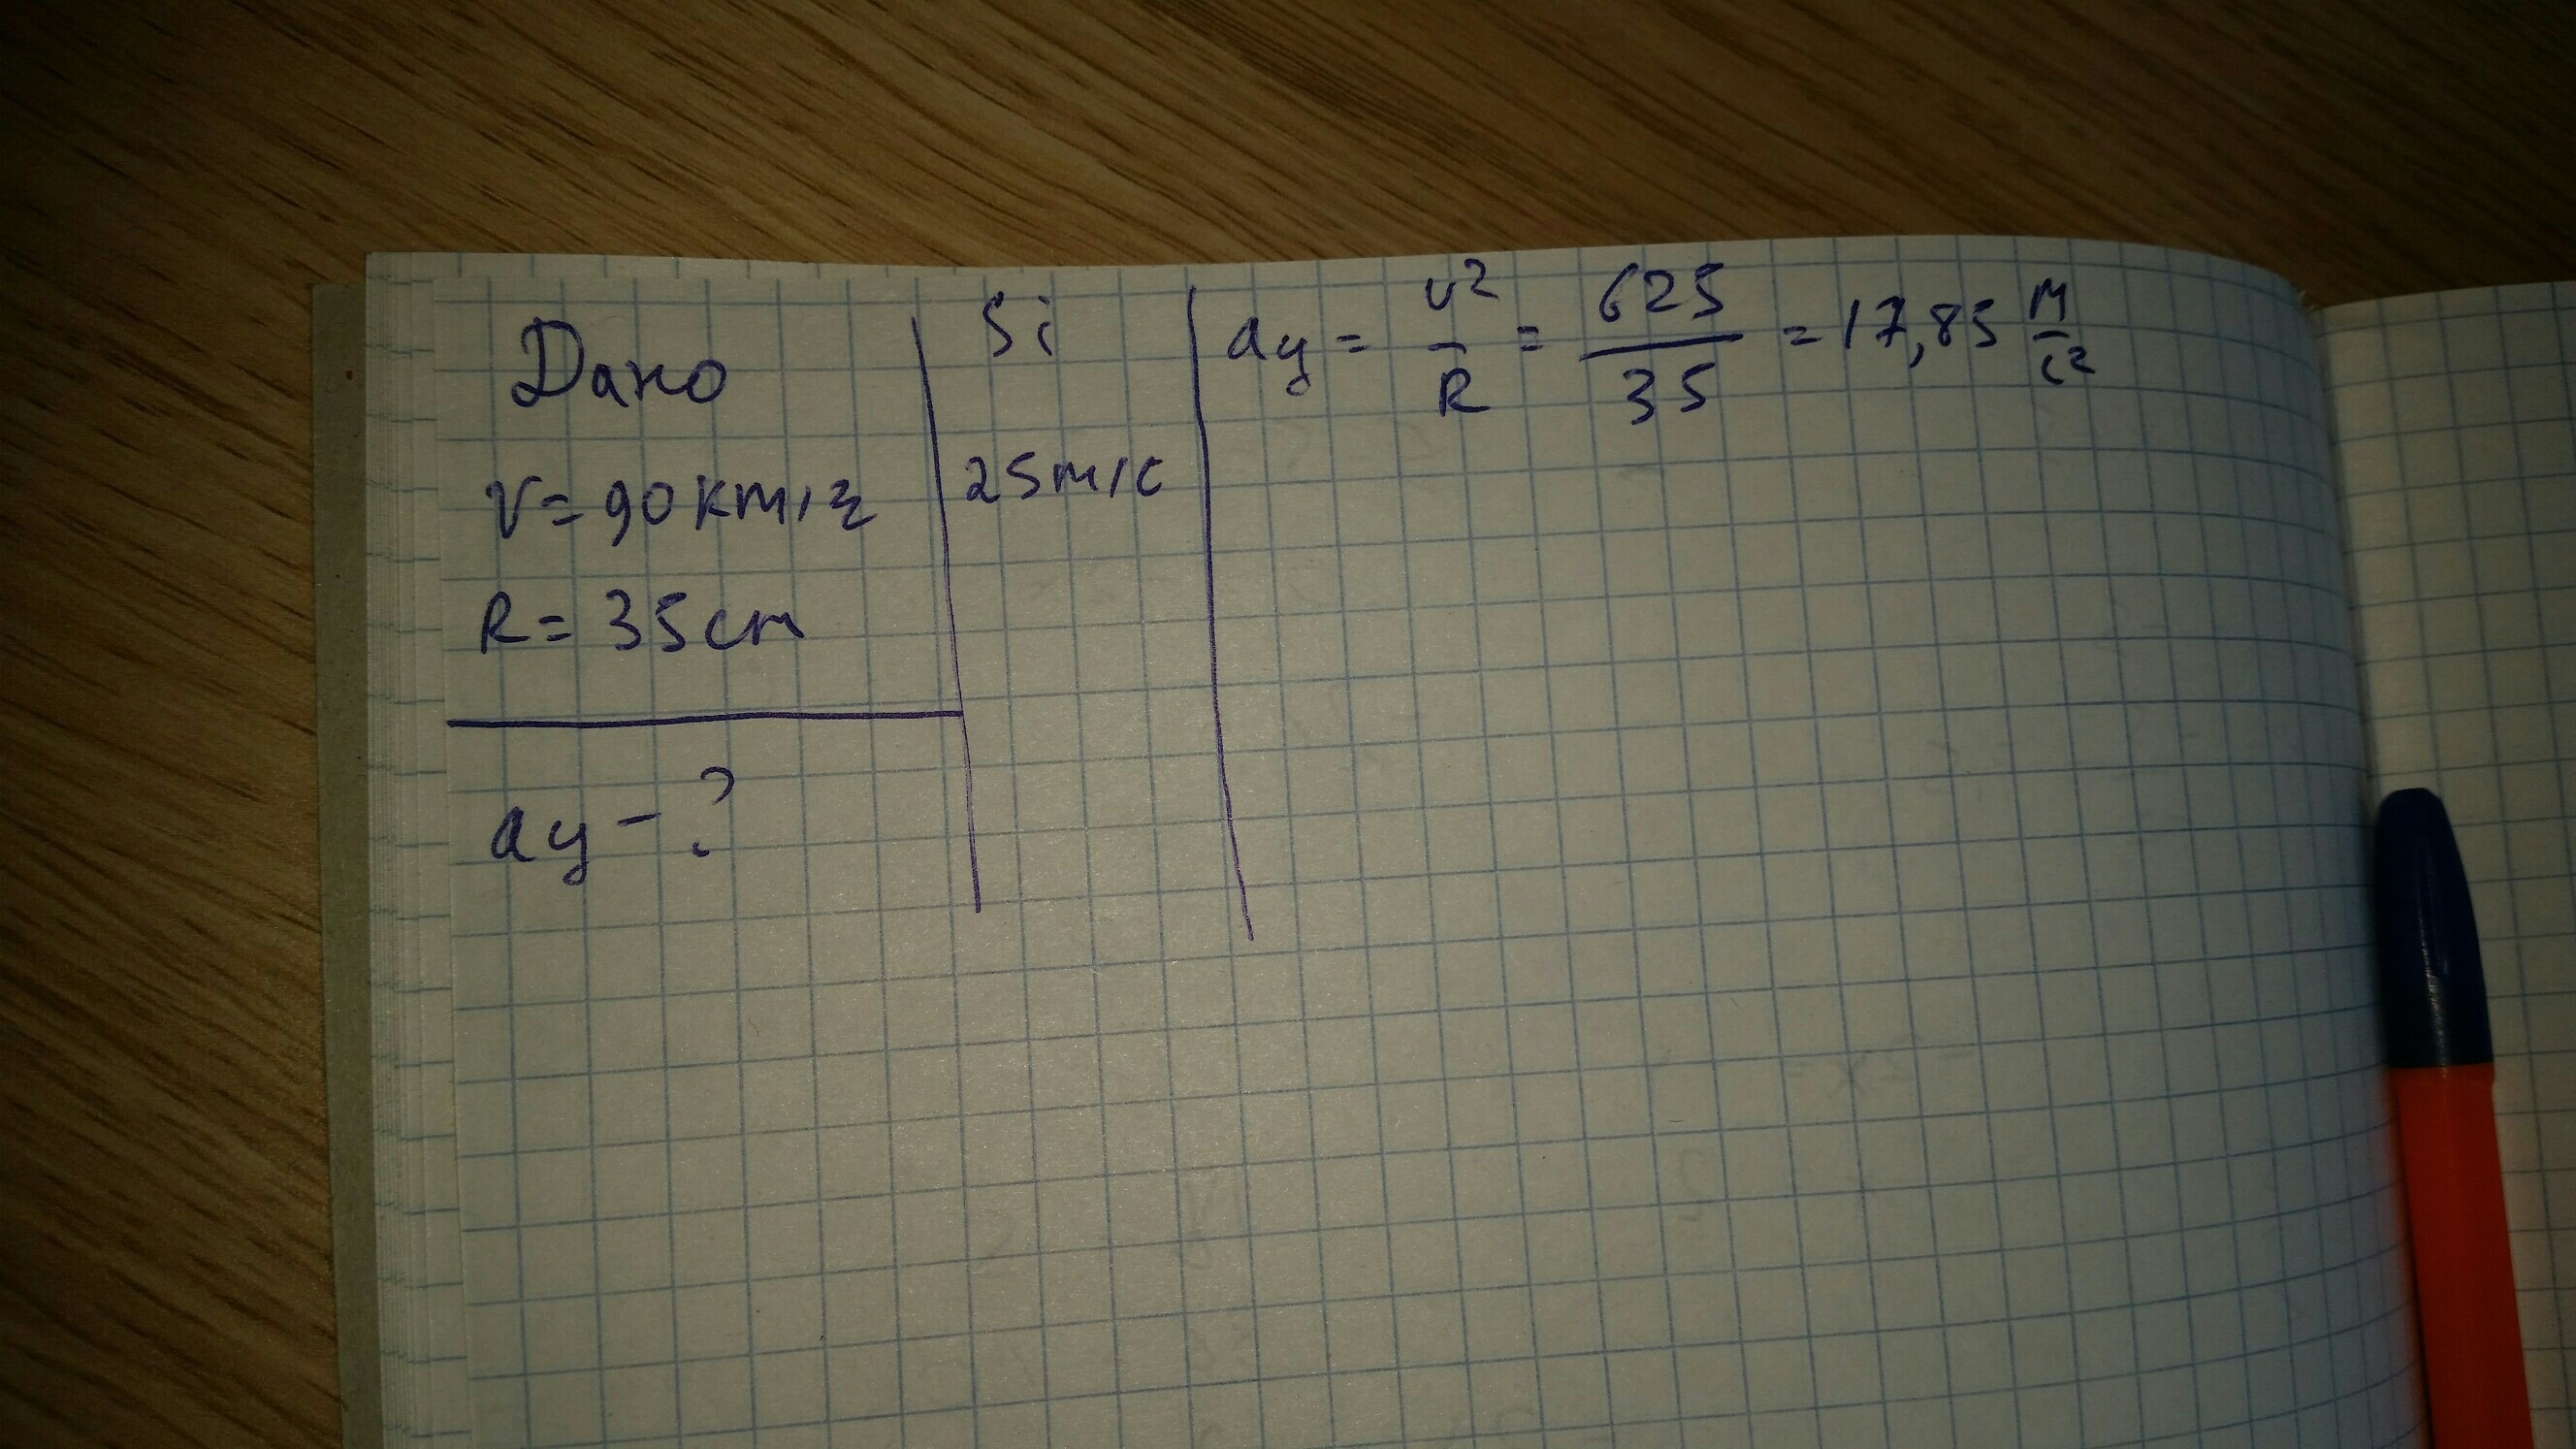 Дано
V = 90 км/ч
R = 35 см
aц - ?
Si
25 м/с
aц = v²/R = 625/35 = 17,85 м/с²